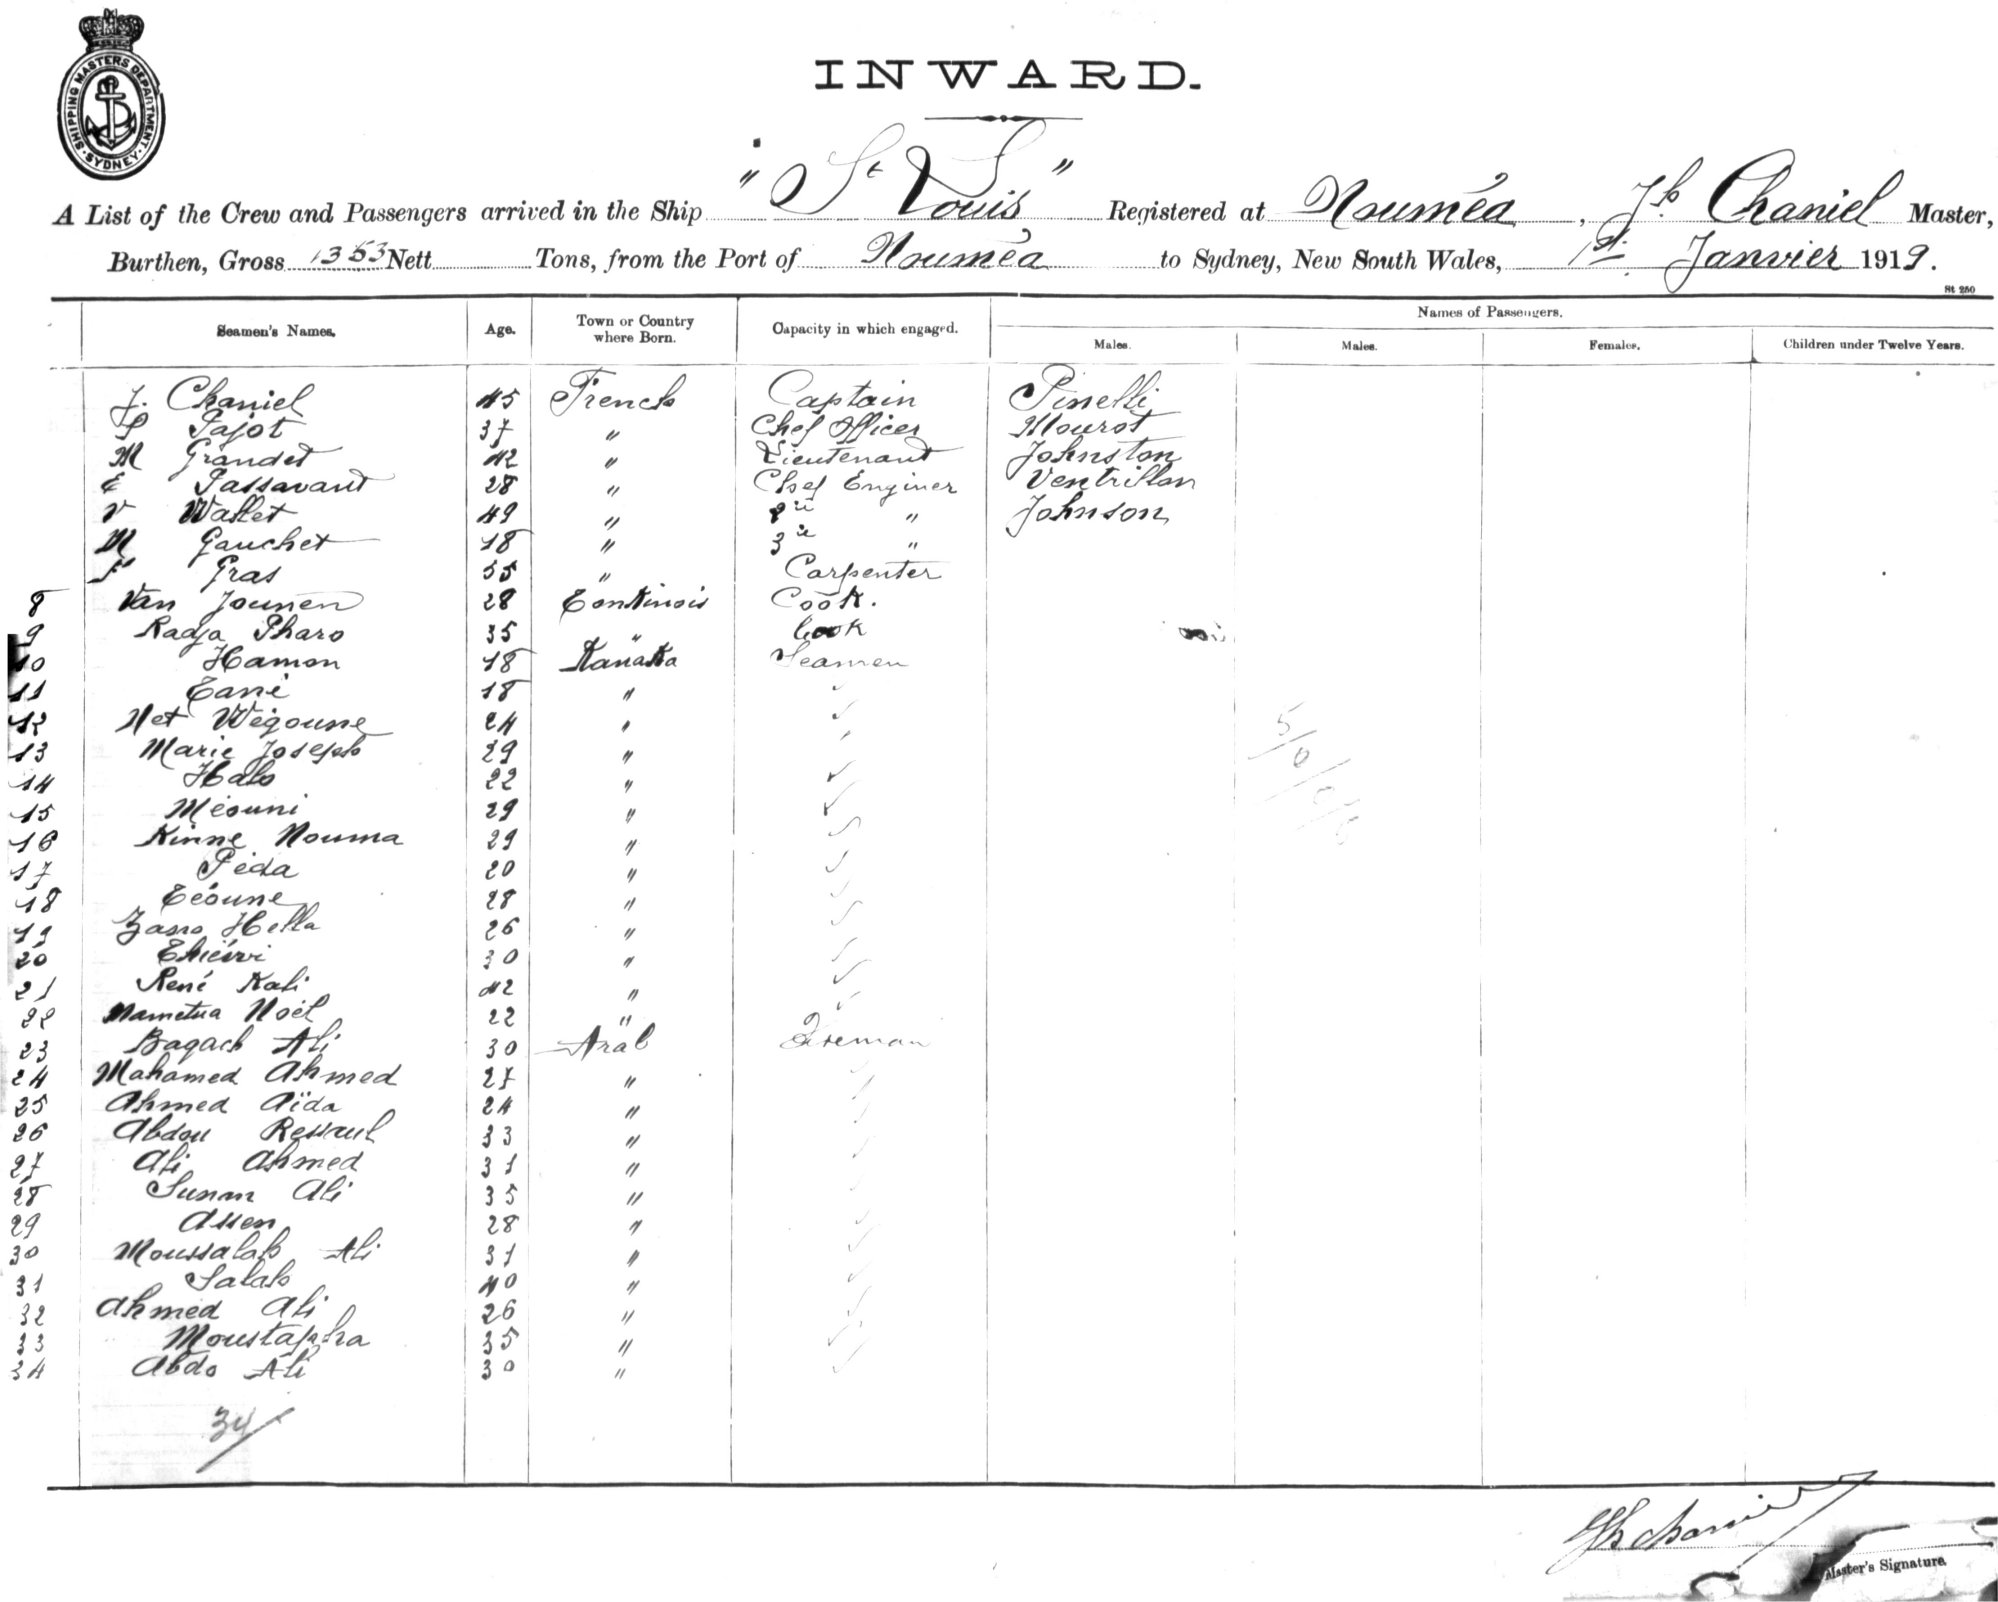 SHIPPING MASTERS DEPARTMENT
SYDNEY
INWARD.
A List of the Crew and Passengers arrived in the Ship "St Louis" Registered at Nouméa, Jh Chaniel Master,
Burthen, Gross 1353 Nett Tons, from the Port of Nouméa to Sydney, New South Wales, 1st Janvier 1919.
St 250
Seamen's Names. Age. Town or Country where Born. Capacity in which engaged. Names of Passengers.
Males. Males. Females. Children under Twelve Years.
J. Chaniel 45 French Captain Pinelli
Pajot 37 " Chef Officer Mourot
M Grandet 42 " Lieutenant Johnston
E Passavant 28 " Chef Enginer Ventrillon
V Wallet 49 " 2ie " Johnson
M Gauchet 18 " 3ie "
Gras 55 " Carpenter
8 Van Jounen 28 Tonkinois Cook.
9 Radja Pharo 35 " Cook
10 Hamon 18 Kanaka Seamen
11 Eani 18 "
12 Net Wégoune 24 "
13 Marie Joseph 29 "
14 Halo 22 "
15 Méouni 29 "
16 Kinne Nouma 29 "
17 Péda 20 "
18 Eéoune 28 "
19 Zano Hella 26 "
20 30 "
21 René Kali 42 "
22 Nametua Noël 22 "
23 Bagach Ali 30 Arab Fireman
24 Mahamed Ahmed 27 "
25 Ahmed Aïda 24 "
26 Abdou Ressoul 33 "
27 Ali Ahmed 31 "
28 Ali 35 "
29 Assen 28 "
30 Moussalah Ali 31 "
31 Salah 40 "
32 Ahmed Ali 26 "
33 Moustapha 35 "
34 Abdo Ali 30 "
34/
Jh Chaniel
Master's Signature